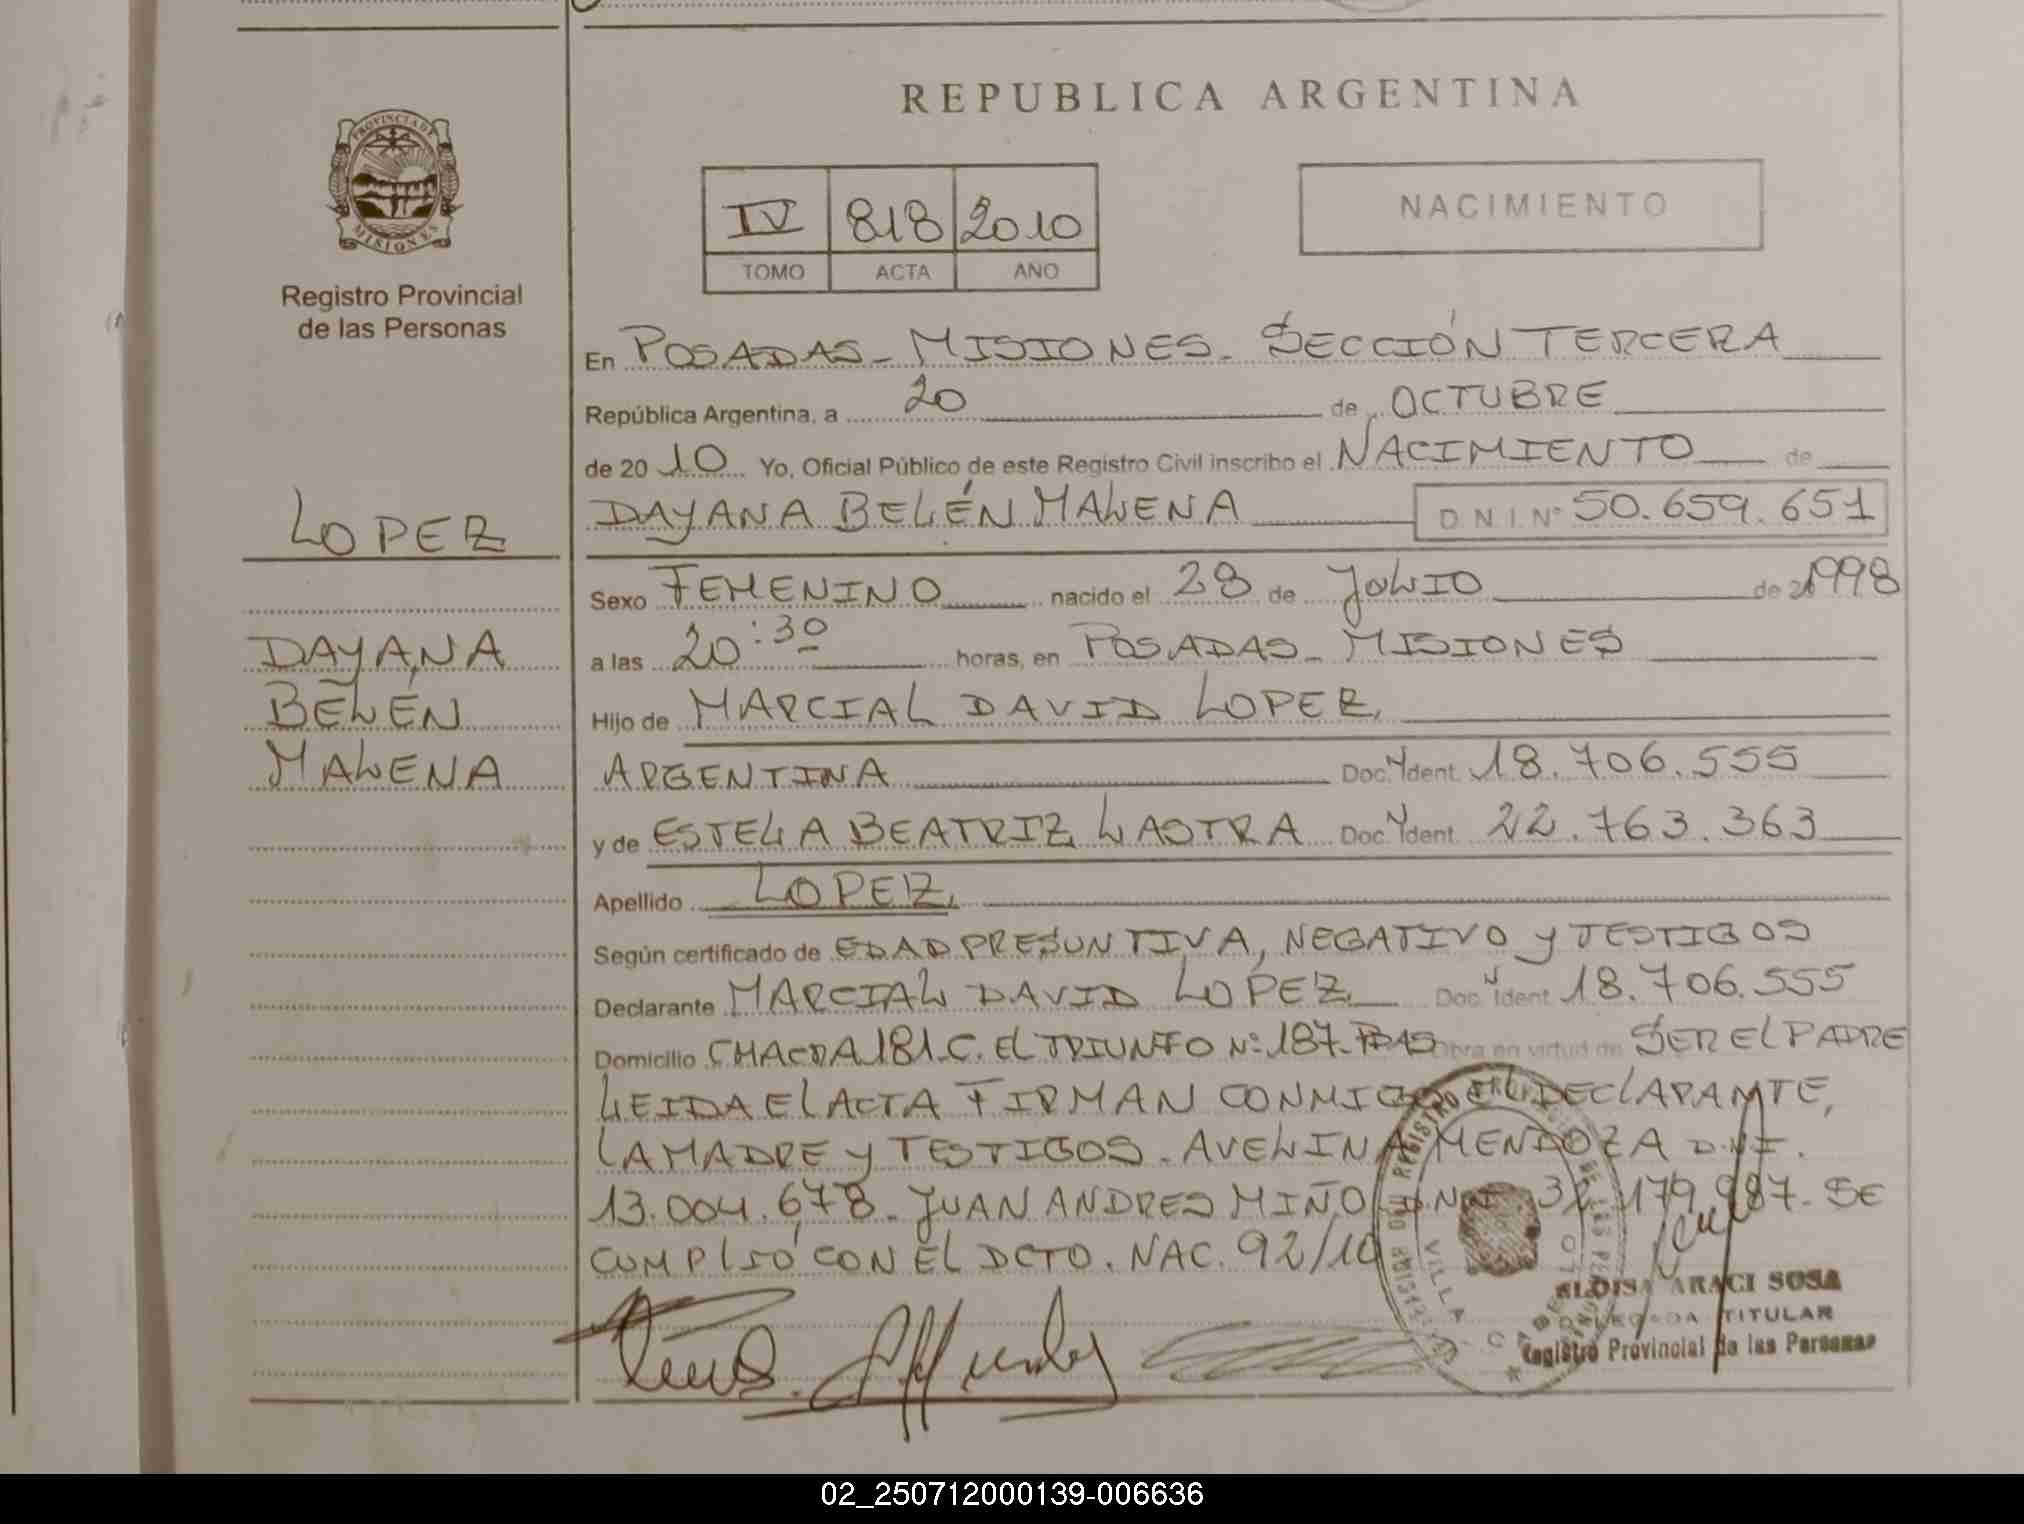 REPUBLICA ARGENTINA
PROVINCIA DE MISIONES
Registro Provincial
de las Personas
IV 818 2010
TOMO ACTA AÑO
NACIMIENTO
En POSADAS - MISIONES - SECCIÓN TERCERA
República Argentina, a 20 de OCTUBRE
de 20 10 Yo, Oficial Público de este Registro Civil inscribo el NACIMIENTO de
DAYANA BELÉN MALENA D N I. N° 50.659.651
LOPEZ
DAYANA
BELÉN
MALENA
Sexo FEMENINO nacido el 28 de JULIO de 1998
a las 20:30 horas, en POSADAS - MISIONES
Hijo de MARCIAL DAVID LOPEZ,
ARGENTINA Doc. Ident. 18.706.555
y de ESTELA BEATRIZ LASTRA Doc. Ident. 22.763.363
Apellido LOPEZ,
Según certificado de EDAD PRESUNTIVA, NEGATIVO y TESTIGOS
Declarante MARCIAL DAVID LOPEZ Doc. Ident 18.706.555
Domicilio CHACRA 181. C. EL TRIUNFO N° 187-PDAS Obra en virtud de SER EL PADRE
LEIDA EL ACTA FIRMAN CONMIGO EL DECLARANTE,
LA MADRE y TESTIGOS. AVELINA MENDOZA D.N.I.
13.004.678 - JUAN ANDRES MIÑO D.N.I. 32.179.987. SE
CUMPLIÓ CON EL DCTO. NAC. 92/10
VILLA CABELLO
ELOISA ARACI SOSA
DELEGADA TITULAR
Registro Provincial de las Personas
02_250712000139-006636